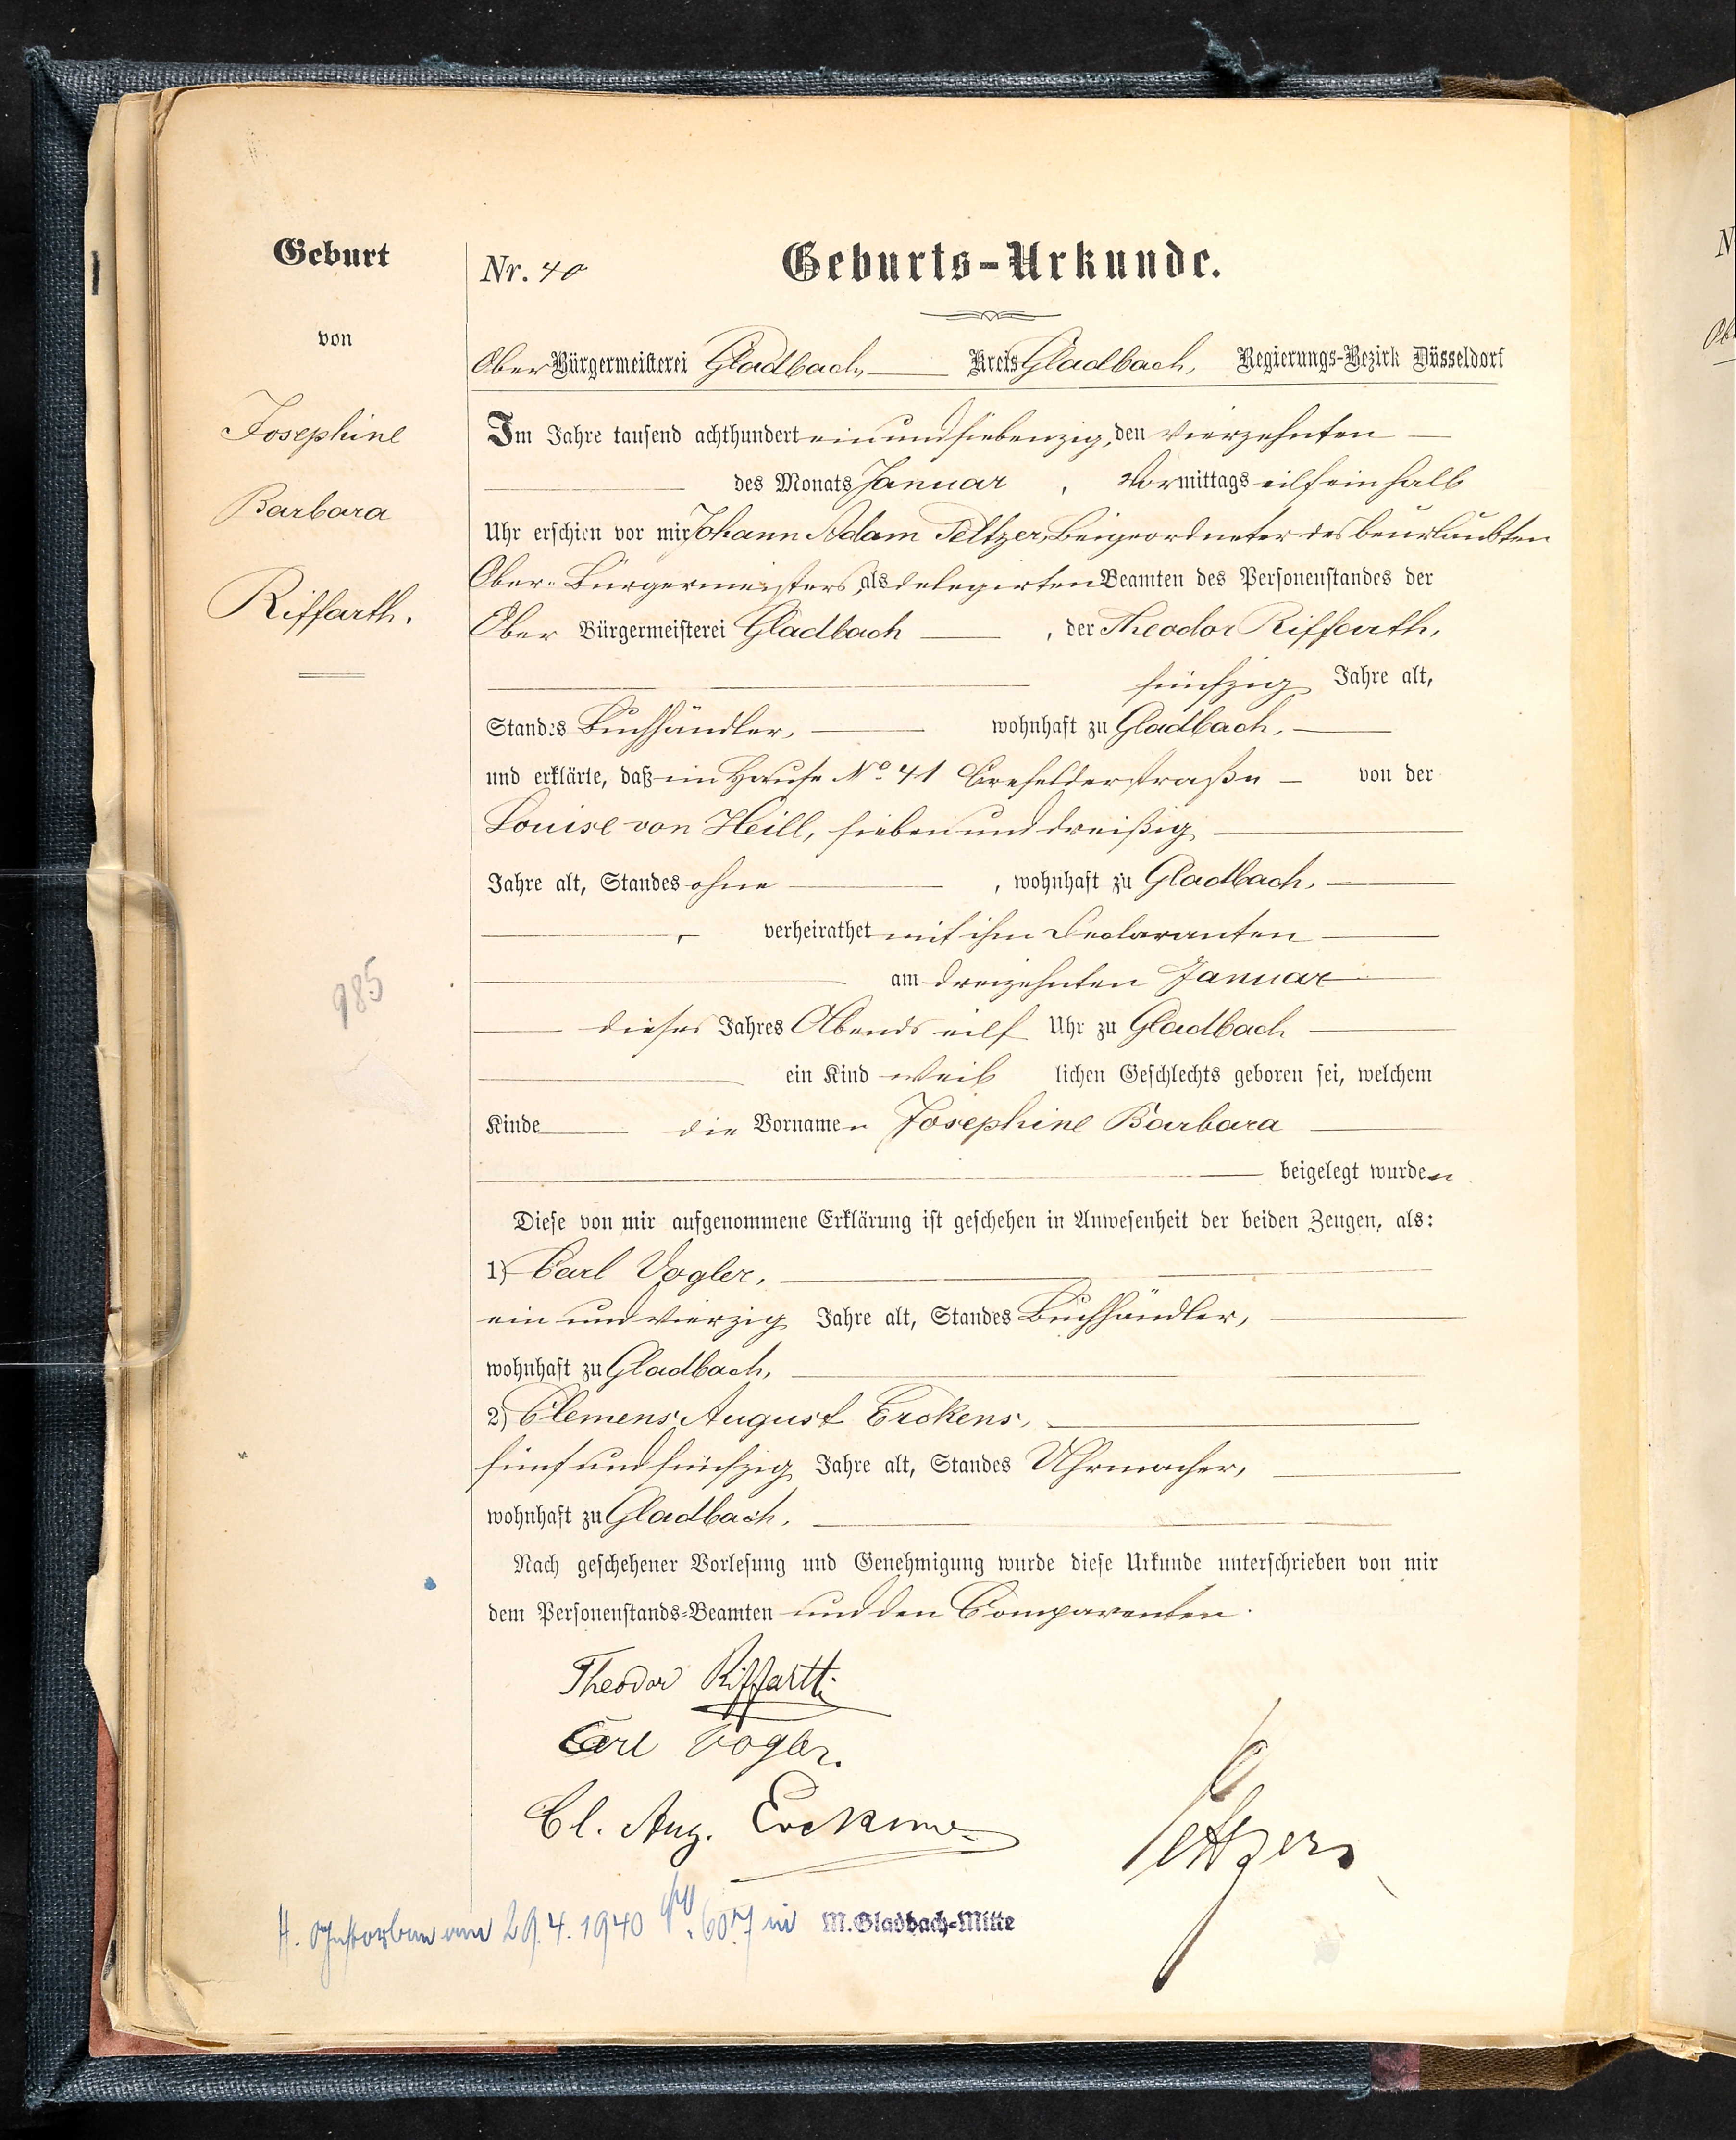 Geburt
von
Josephine
Barbara
Riffarth.
985
Nr. 40
Geburts-Urkunde.
Ober Bürgermeisterei Gladbach, Kreis Gladbach, Regierungs-Bezirk Düsseldorf
Im Jahre tausend achthundert ein und siebenzig, den vierzehnten
des Monats Januar, Vormittags eilf ein halb
Uhr erschien vor mir Johann Adam Peltzer, Beigeordneter des beurlaubten
Ober-Bürgermeisters, als delegirten Beamten des Personenstandes der
Ober Bürgermeisterei Gladbach, der Theodor Riffarth,
fünfzig Jahre alt,
Standes Buchhändler, wohnhaft zu Gladbach,
und erklärte, daß im Hause No. 41 Crefelderstraße von der
Louise von Heill, sieben und dreißig
Jahre alt, Standes ohne, wohnhaft zu Gladbach,
verheirathet mit ihm Declaranten
am dreizehnten Januar
dieses Jahres Abends eilf Uhr zu Gladbach
ein Kind weiblichen Geschlechts geboren sei, welchem
Kinde die Vornamen Josephine Barbara
beigelegt wurden
Diese von mir aufgenommene Erklärung ist geschehen in Anwesenheit der beiden Zeugen, als:
1) Carl Vogler,
ein und vierzig Jahre alt, Standes Buchhändler,
wohnhaft zu Gladbach,
2) Clemens August Erckens,
fünf und fünfzig Jahre alt, Standes Uhrmacher,
wohnhaft zu Gladbach.
Nach geschehener Vorlesung und Genehmigung wurde diese Urkunde unterschrieben von mir
dem Personenstands-Beamten und den Comparenten.
Theodor Riffarth
Carl Vogler.
Cl. Aug. Erckens
Peltzer
H. Gestorben am 29.4.1940 in M.Gladbach-Mitte